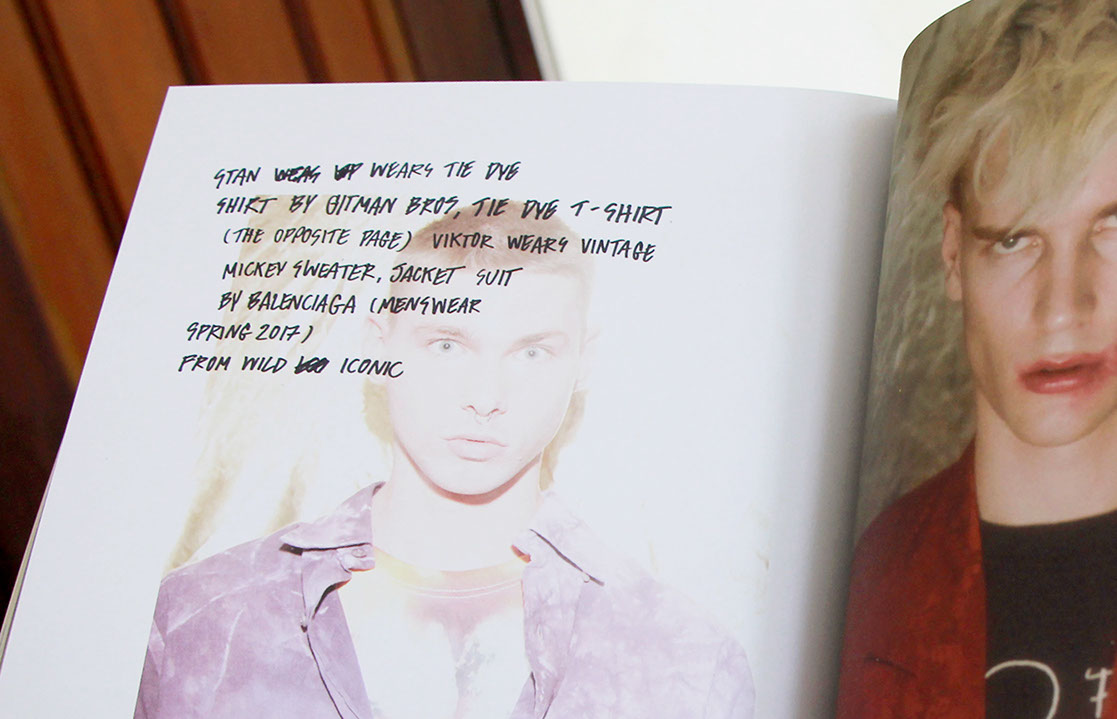 STAN WEARS TIE DYE
SHIRT BY GITMAN BROS, TIE DYE T-SHIRT
(THE OPPOSITE PAGE) VIKTOR WEARS VINTAGE
MICKEY SWEATER, JACKET SUIT
BY BALENCIAGA (MENSWEAR
SPRING 2017)
FROM WILD ICONIC